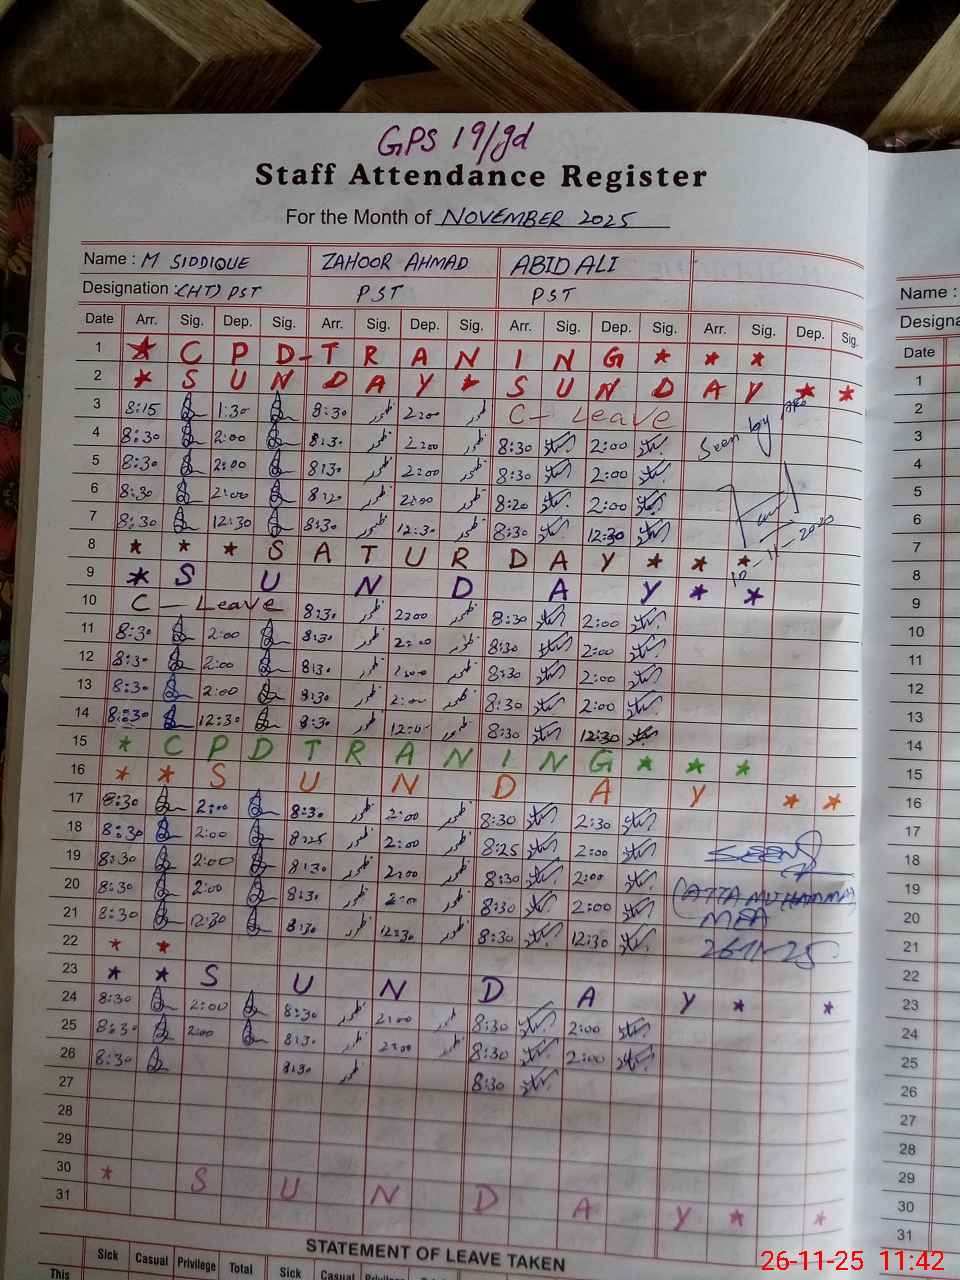 GPS 19/gd
Staff Attendance Register
For the Month of NOVEMBER 2025
Name : M SIDDIQUE ZAHOOR AHMAD ABID ALI
Designation : (HT) PST PST PST
Date Arr. Sig. Dep. Sig. Arr. Sig. Dep. Sig. Arr. Sig. Dep. Sig. Arr. Sig. Dep. Sig.
1 * C P D - T R A N I N G * * *
2 * S U N D A Y * S U N D A Y * *
3 8:15 1:30 8:30 ظہور 2:00 ظہور C - Leave
4 8:30 2:00 8:30 ظہور 2:00 ظہور 8:30 2:00 Seen by
5 8:30 2:00 8:30 ظہور 2:00 ظہور 8:30 2:00
6 8:30 2:00 ظہور 2:00 ظہور 8:20 2:00
7 8:30 12:30 8:30 ظہور 12:30 ظہور 8:30 12:30
8 * * * S A T U R D A Y * * *
9 * S U N D A Y * *
10 C - Leave 8:30 ظہور 2:00 ظہور 8:30 2:00
11 8:30 2:00 8:30 ظہور 2:00 ظہور 8:30 2:00
12 8:30 2:00 8:30 ظہور 2:00 ظہور 8:30 2:00
13 8:30 2:00 8:30 ظہور 2:00 ظہور 8:30 2:00
14 8:30 12:30 8:30 ظہور ظہور 8:30 12:30
15 * C P D T R A N I N G * * *
16 * * S U N D A Y * *
17 8:30 2:00 8:30 ظہور 2:00 ظہور 8:30 2:30
18 8:30 2:00 8:25 ظہور 2:00 ظہور 8:25 2:00
19 8:30 2:00 8:30 ظہور 2:00 ظہور 8:30 2:00
20 8:30 2:00 8:30 ظہور 2:00 ظہور 8:30 2:00 (ATTA MUHAMMAD)
21 8:30 12:30 8:30 ظہور 12:30 ظہور 8:30 12:30 MEA
22 * * 26-11-25
23 * * S U N D A Y * *
24 8:30 2:00 8:30 ظہور 2:00 ظہور 8:30 2:00
25 8:30 2:00 8:30 ظہور 2:00 ظہور 8:30 2:00
26 8:30 8:30 ظہور 8:30
27
28
29
30 * S U N D A Y * *
31
STATEMENT OF LEAVE TAKEN
Sick Casual Privilege Total Sick Casual
This
Name :
Date
1
2
3
4
5
6
7
8
9
10
11
12
13
14
15
16
17
18
19
20
21
22
23
24
25
26
27
28
29
30
31
26-11-25 11:42